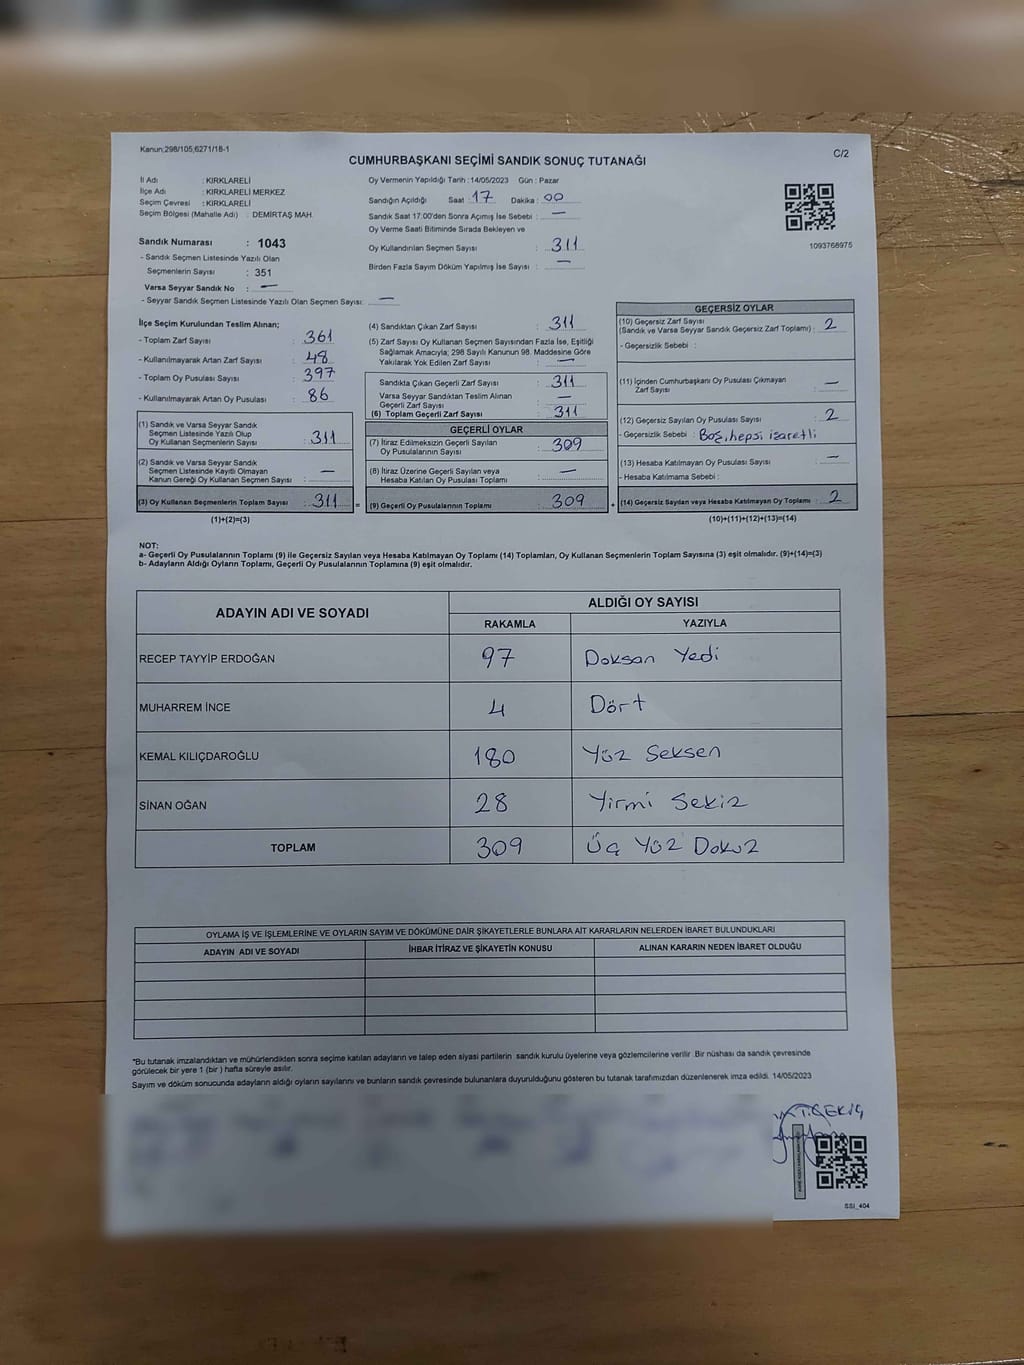 Kanun;298/105;6271/18-1
C/2
CUMHURBAŞKANI SEÇİMİ SANDIK SONUÇ TUTANAĞI
İl Adı : KIRKLARELİ
İlçe Adı : KIRKLARELİ MERKEZ
Seçim Çevresi : KIRKLARELİ
Seçim Bölgesi (Mahalle Adı) : DEMİRTAŞ MAH.
Sandık Numarası : 1043
- Sandık Seçmen Listesinde Yazılı Olan
Seçmenlerin Sayısı : 351
Varsa Seyyar Sandık No : —
- Seyyar Sandık Seçmen Listesinde Yazılı Olan Seçmen Sayısı: —
Oy Vermenin Yapıldığı Tarih : 14/05/2023 Gün : Pazar
Sandığın Açıldığı Saat : 17 Dakika : 00
Sandık Saat 17:00'den Sonra Açımış İse Sebebi : —
Oy Verme Saati Bitiminde Sırada Bekleyen ve
Oy Kullandırılan Seçmen Sayısı : 311
Birden Fazla Sayım Döküm Yapılmış İse Sayısı : —
1093768975
İlçe Seçim Kurulundan Teslim Alınan;
- Toplam Zarf Sayısı : 361
- Kullanılmayarak Artan Zarf Sayısı : 48
- Toplam Oy Pusulası Sayısı : 397
- Kullanılmayarak Artan Oy Pusulası : 86
(1) Sandık ve Varsa Seyyar Sandık
Seçmen Listesinde Yazılı Olup
Oy Kullanan Seçmenlerin Sayısı : 311
(2) Sandık ve Varsa Seyyar Sandık
Seçmen Listesinde Kayıtlı Olmayan
Kanun Gereği Oy Kullanan Seçmen Sayısı : —
(3) Oy Kullanan Seçmenlerin Toplam Sayısı : 311 =
(1)+(2)=(3)
(4) Sandıktan Çıkan Zarf Sayısı : 311
(5) Zarf Sayısı Oy Kullanan Seçmen Sayısından Fazla İse, Eşitliği
Sağlamak Amacıyla; 298 Sayılı Kanunun 98. Maddesine Göre
Yakılarak Yok Edilen Zarf Sayısı : —
Sandıkta Çıkan Geçerli Zarf Sayısı : 311
Varsa Seyyar Sandıktan Teslim Alınan
Geçerli Zarf Sayısı : —
(6) Toplam Geçerli Zarf Sayısı : 311
GEÇERLİ OYLAR
(7) İtiraz Edilmeksizin Geçerli Sayılan
Oy Pusulasının Sayısı : 309
(8) İtiraz Üzerine Geçerli Sayılan veya
Hesaba Katılan Oy Pusulası Toplamı : —
(9) Geçerli Oy Pusulalarının Toplamı : 309 +
GEÇERSİZ OYLAR
(10) Geçersiz Zarf Sayısı
(Sandık ve Varsa Seyyar Sandık Geçersiz Zarf Toplamı) : 2
- Geçersizlik Sebebi :
(11) İçinden Cumhurbaşkanı Oy Pusulası Çıkmayan
Zarf Sayısı : —
(12) Geçersiz Sayılan Oy Pusulası Sayısı : 2
- Geçersizlik Sebebi : Boş, hepsi işaretli
(13) Hesaba Katılmayan Oy Pusulası Sayısı : —
- Hesaba Katılmama Sebebi :
(14) Geçersiz Sayılan veya Hesaba Katılmayan Oy Toplamı : 2
(10)+(11)+(12)+(13)=(14)
NOT:
a- Geçerli Oy Pusulalarının Toplamı (9) ile Geçersiz Sayılan veya Hesaba Katılmayan Oy Toplamı (14) Toplamları, Oy Kullanan Seçmenlerin Toplam Sayısına (3) eşit olmalıdır. (9)+(14)=(3)
b- Adayların Aldığı Oyların Toplamı, Geçerli Oy Pusulalarının Toplamına (9) eşit olmalıdır.
ADAYIN ADI VE SOYADI
ALDIĞI OY SAYISI
RAKAMLA YAZIYLA
RECEP TAYYİP ERDOĞAN 97 Doksan Yedi
MUHARREM İNCE 4 Dört
KEMAL KILIÇDAROĞLU 180 Yüz Seksen
SİNAN OĞAN 28 Yirmi Sekiz
TOPLAM 309 Üç Yüz Dokuz
OYLAMA İŞ VE İŞLEMLERİNE VE OYLARIN SAYIM VE DÖKÜMÜNE DAİR ŞİKAYETLERLE BUNLARA AİT KARARLARIN NELERDEN İBARET BULUNDUKLARI
ADAYIN ADI VE SOYADI İHBAR İTİRAZ VE ŞİKAYETİN KONUSU ALINAN KARARIN NEDEN İBARET OLDUĞU
*Bu tutanak imzalandıktan ve mühürlendikten sonra seçime katılan adayların ve talep eden siyasi partilerin sandık kurulu üyelerine veya gözlemcilerine verilir. Bir nüshası da sandık çevresinde
görülecek bir yere 1 (bir ) hafta süreyle asılır.
Sayım ve döküm sonucunda adayların aldığı oyların sayılarını ve bunların sandık çevresinde bulunanlara duyurulduğunu gösteren bu tutanak tarafımızdan düzenlenerek imza edildi. 14/05/2023
SSI_404